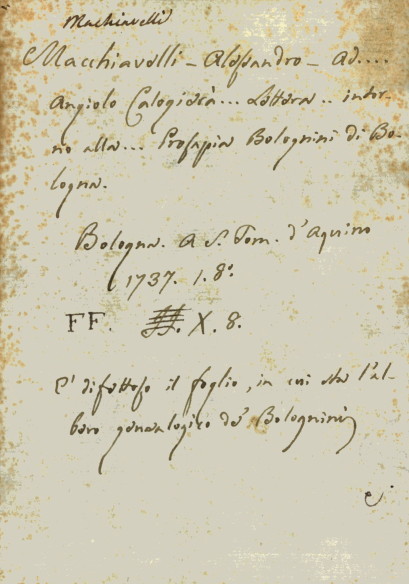 Machiavelli
Macchiavelli - Alessandro - Ad....
Angiolo Calogierà... Lettera.. intor-
no alla... Prosapia Bolognini di Bo-
logna.
Bologna. A S. Tom. d'Aquino
1737. 1. 8º.
FF. X. 8.
E' difettoso il foglio, in cui sta l'al-
bero genealogico de' Bolognini